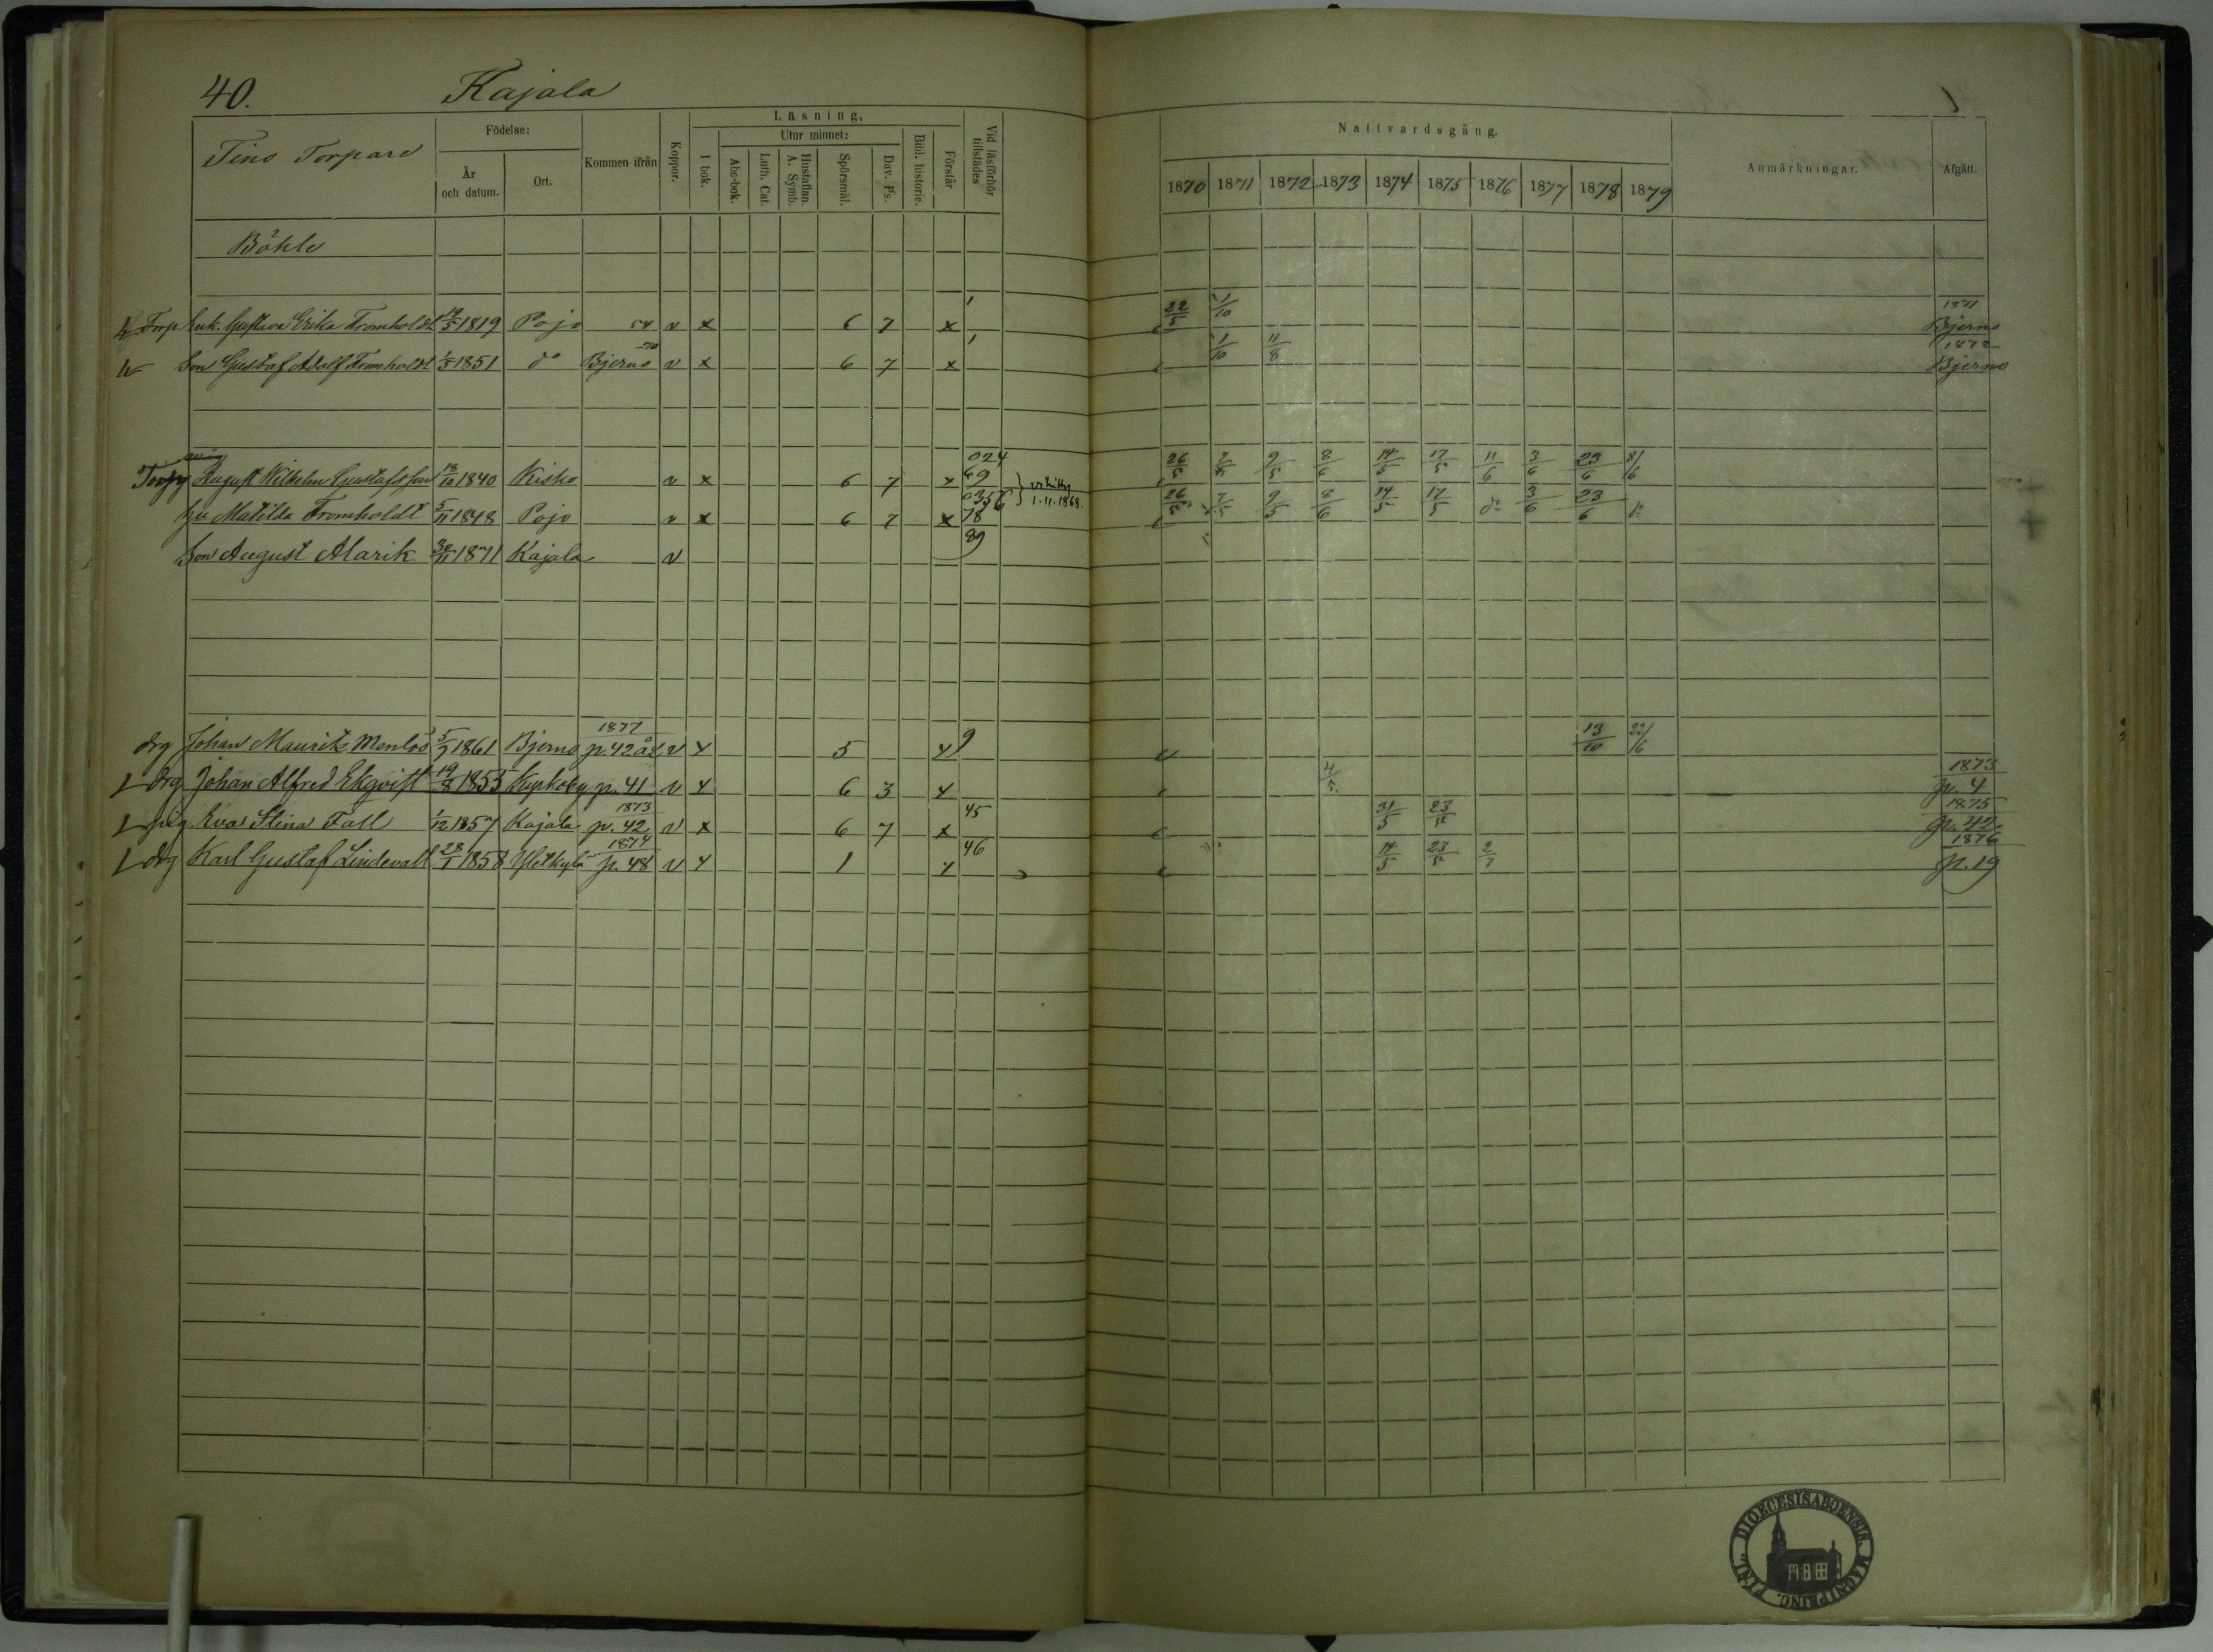 40. Kajala
Tino Torpare
Födelse:
År och datum.
Ort.
Kommen ifrån
Koppor.
Läsning.
I bok.
Utur minnet:
Abc-bok.
Luth. Cat.
Hustaflan. A. Symb.
Spörsmål.
Dav. Ps.
Bibl. historie.
Förstår
Vid läsförhör tillstädes
Nattvardsgång.
1870 1871 1872 1873 1874 1875 1876 1877 1878 1879
Anmärkningar.
Afgått.
Böhle
Torp Enk. Gustava Erika Fromholdt 1819 Pojo 54 v x 6 7 x 22/5 1/10 1871 Bjerno
Son Gustaf Adolf Fromholdt 1851 do Bjerno v x 6 7 x 1/10 11/8 1872 Bjerno
August Wilhelm Gustafsson 1840 Kisko v x 6 7 x 024 69 } vihitty 1.11.1868. 26/5 9/5 8/6 14/5 17/5 11/6 3/6 23/6 8/6
Hu Matilda Fromholdt 5/11 1848 Pojo v x 6 7 x 0356 78 26/5 7/5 9/5 8/6 14/5 17/5 do 3/6 23/6
Son August Alarik 30/11 1871 Kajala v 89
drg Johan Maurits 5/7 1861 Bjerno 1877 p. 42 v x 5 x 9 13/10 22/6
drg Johan Alfred Ekqvist 1855 p. 41 v x 6 3 x 4/5 1873 p. 4
pig. Eva Stina Fall 1/12 1857 Kajala 1873 p. 42 v x 6 7 x 45 31/5 23/5 1875 p. 42
drg Karl Gustaf Lindevall 28/1 1858 Yletkylä 1874 p. 48 v x 1 x 46 14/5 23/5 1876 p. 19